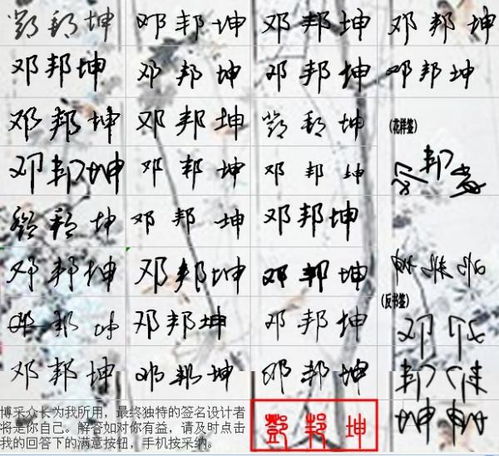 鄧邦坤 邓邦坤 邓邦坤 邓邦坤
邓邦坤 邓邦坤 邓邦坤 邓邦坤
邓邦坤 邓邦坤 鄧邦坤
(花样签)
邓邦坤 邓邦坤 邓邦坤
鄧邦坤 邓邦坤 邓邦坤
邓邦坤 邓邦坤 邓邦坤
(反书签)
邓邦坤 邓邦坤 邓邦坤
邓邦坤 邓邦坤 邓邦坤
博采众长为我所用，最终独特的签名设计者
将是你自己。解答如对你有益，请及时点击
我的回答下的满意按钮，手机按采纳。
鄧邦坤